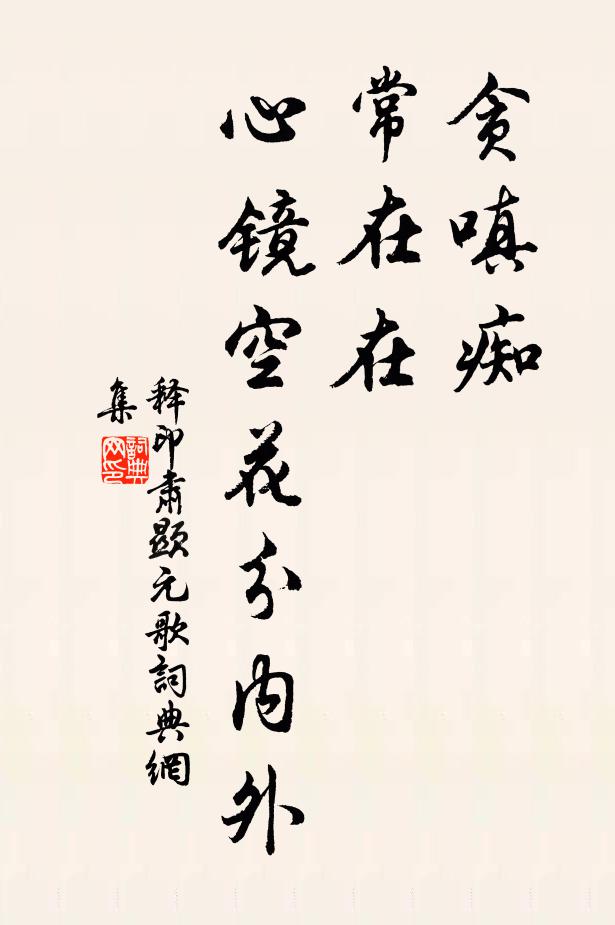 贪嗔痴
常在在
心镜空花分内外
释印肃顯元歌詞典網
集
詞典
网印